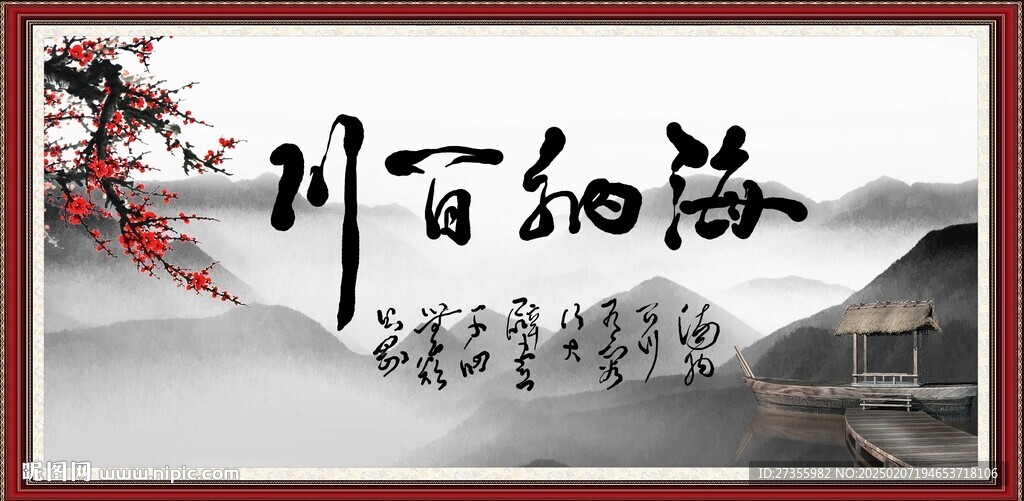 海纳百川
海纳
百川
有容
乃大
壁立
千仞
無欲
则刚
昵图网 www.nipic.com
ID:27355982 NO:20250207194653718106